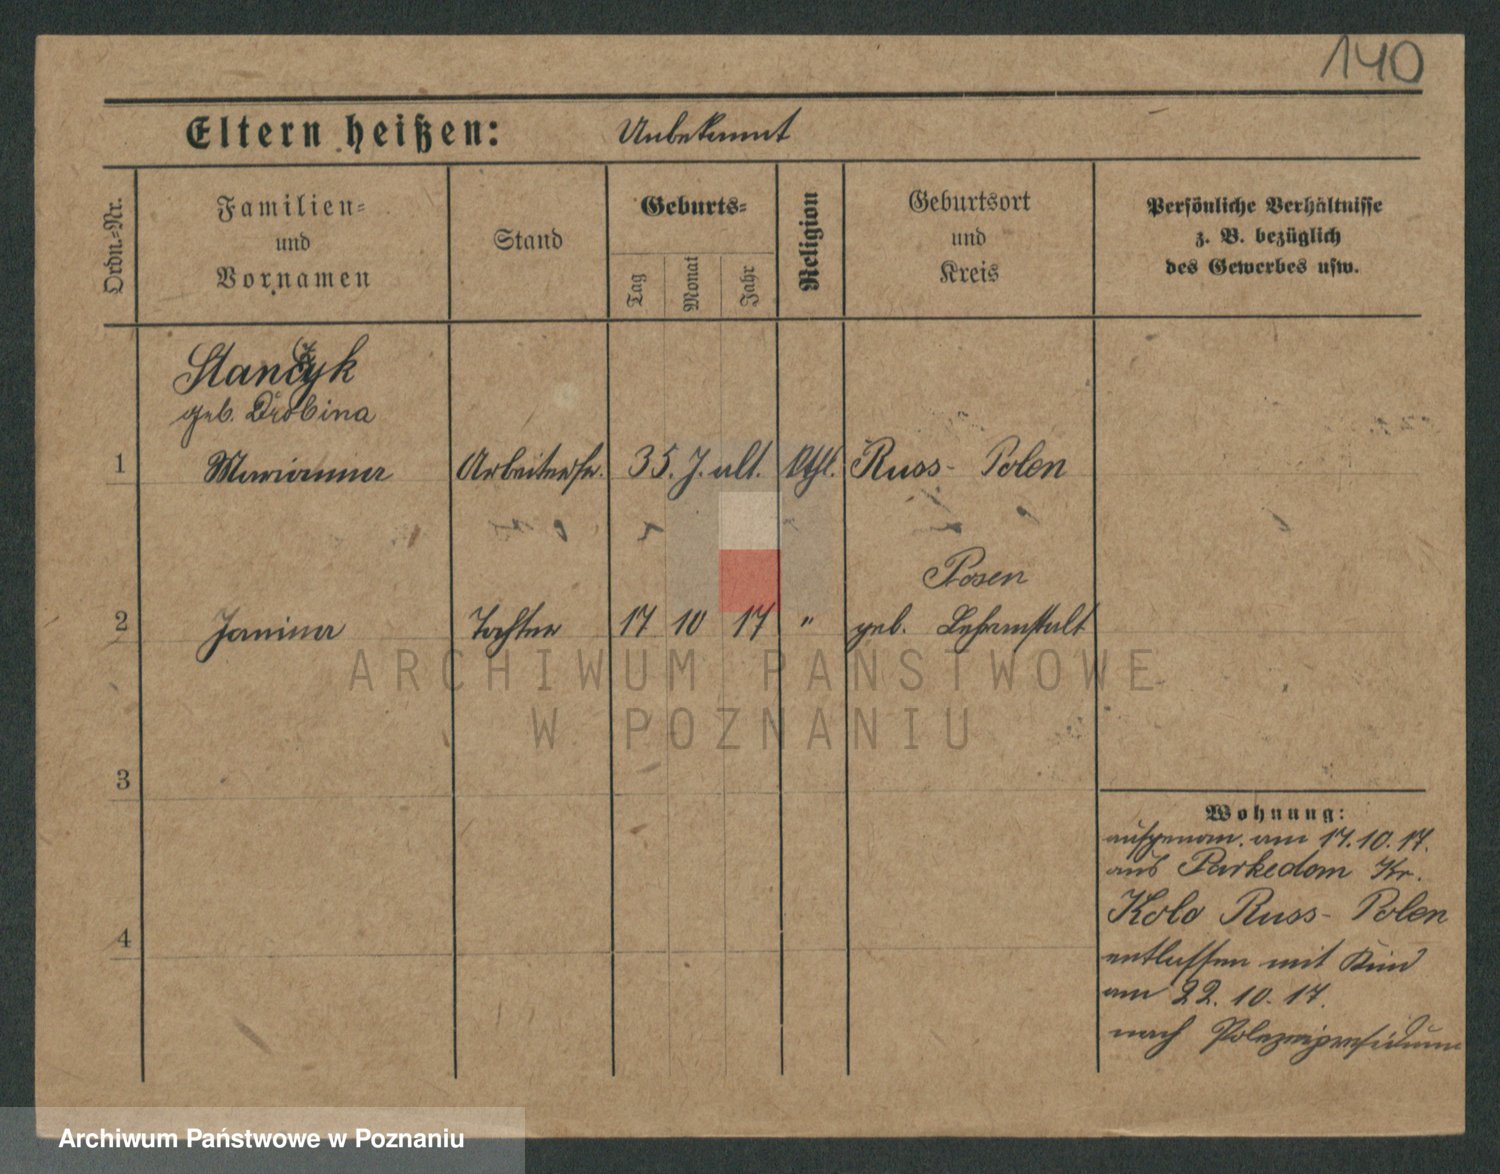 140
Eltern heißen: Unbekannt
Ordn.=Nr.
Familien=
und
Vornamen
Stand
Geburts=
Tag
Monat
Jahr
Religion
Geburtsort
und
Kreis
Persönliche Verhältnisse
z. B. bezüglich
des Gewerbes usw.
Stanczyk
geb. Drobina
1 Marianna Arbeiterfr. 35. J. alt. Kthl. Russ- Polen
Posen
2 Janina Tochter 17 10 17 " geb. Lehranstalt
3
4
Wohnung:
aufgenom. am 17.10.17.
aus Parkedom Kr.
Kolo Russ- Polen
entlassen mit Kind
am 22.10.17.
nach Polizeipräsidium
ARCHIWUM PAŃSTWOWE
W POZNANIU
Archiwum Państwowe w Poznaniu